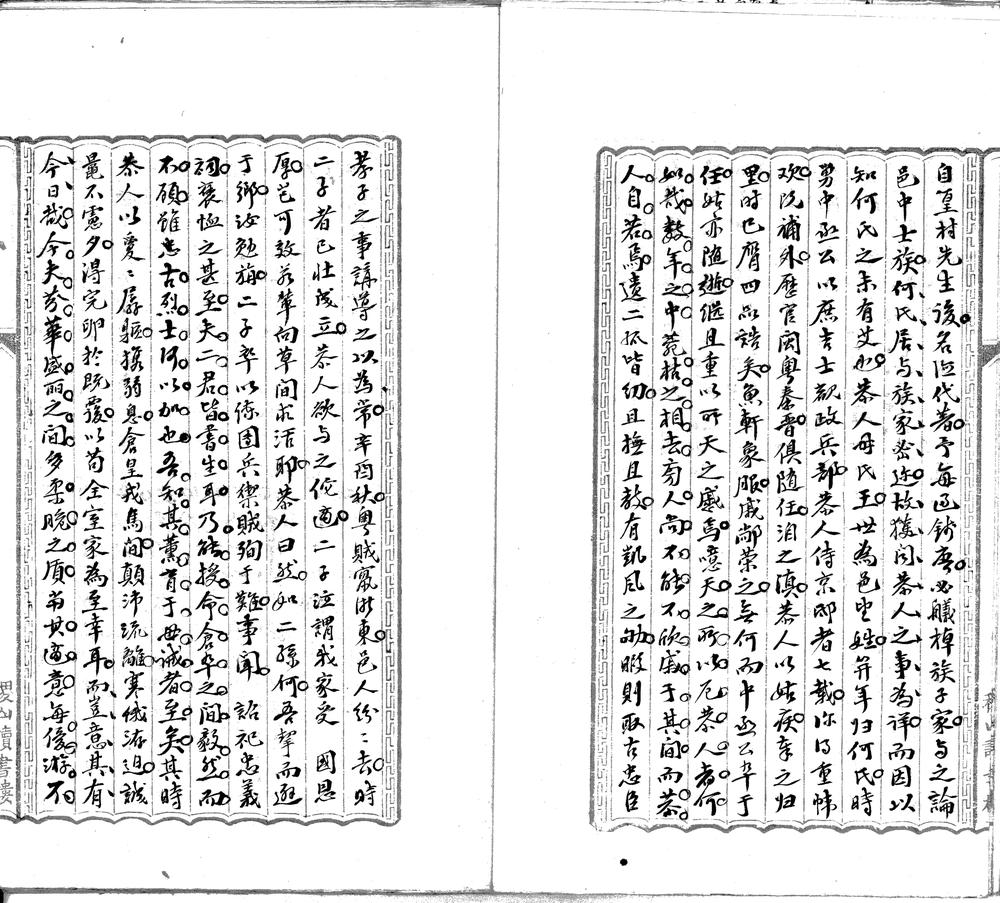 自篁村先生後名位代著予每過錢唐必艤棹族子家与之論
邑中士族何氏居与族家密迩故獲聞恭人之事為詳而因以
知何氏之未有艾也恭人母氏王世為邑望姓笄年归何氏時
舅中丞公以庶吉士観政兵部恭人侍京邸者七載泲以重幃
欢阮補外歷官閩粤秦晋俱随任洎之滇恭人以姑疾奉之归
里时已膺四品誥矣魚軒象服戚鄰荣之無何而中丞公卒于
任姑亦随逝继且重以所天之慼焉噫天之所以厄恭人者何
如哉数年之中菀枯之相去旁人尚不能不欣戚于其間而恭
人自若焉遗二孤皆幼且撫且教有凱风之劬暇則取古忠臣
孝子之事講導之以為常辛酉秋粤賊竄浙東邑人纷〻去時
二子者已壮茂立恭人欲与之偕適二子泣謂我家受 國恩
厚岂可效若輩向草間求活耶恭人曰然如二孫何吾挈而避
于鄉汝勉旃二子卒以練团兵禦贼殉于難事聞 詔祀忠義
祠褒恤之甚至夫二君皆書生耳乃能授命倉卒之間毅然而
不顧雖志古烈士何以加也吾知其薰育于母诚者至矣其時
恭人以愛〻孱軀攜弱息倉皇戎馬間顛沛流離寒餓洊迫誠
量不慮夕得完卵於既覆以苟全室家為至幸耳而豈意其有
今日哉今夫芬華盛丽之間多柔婉之质當其適意每優游不